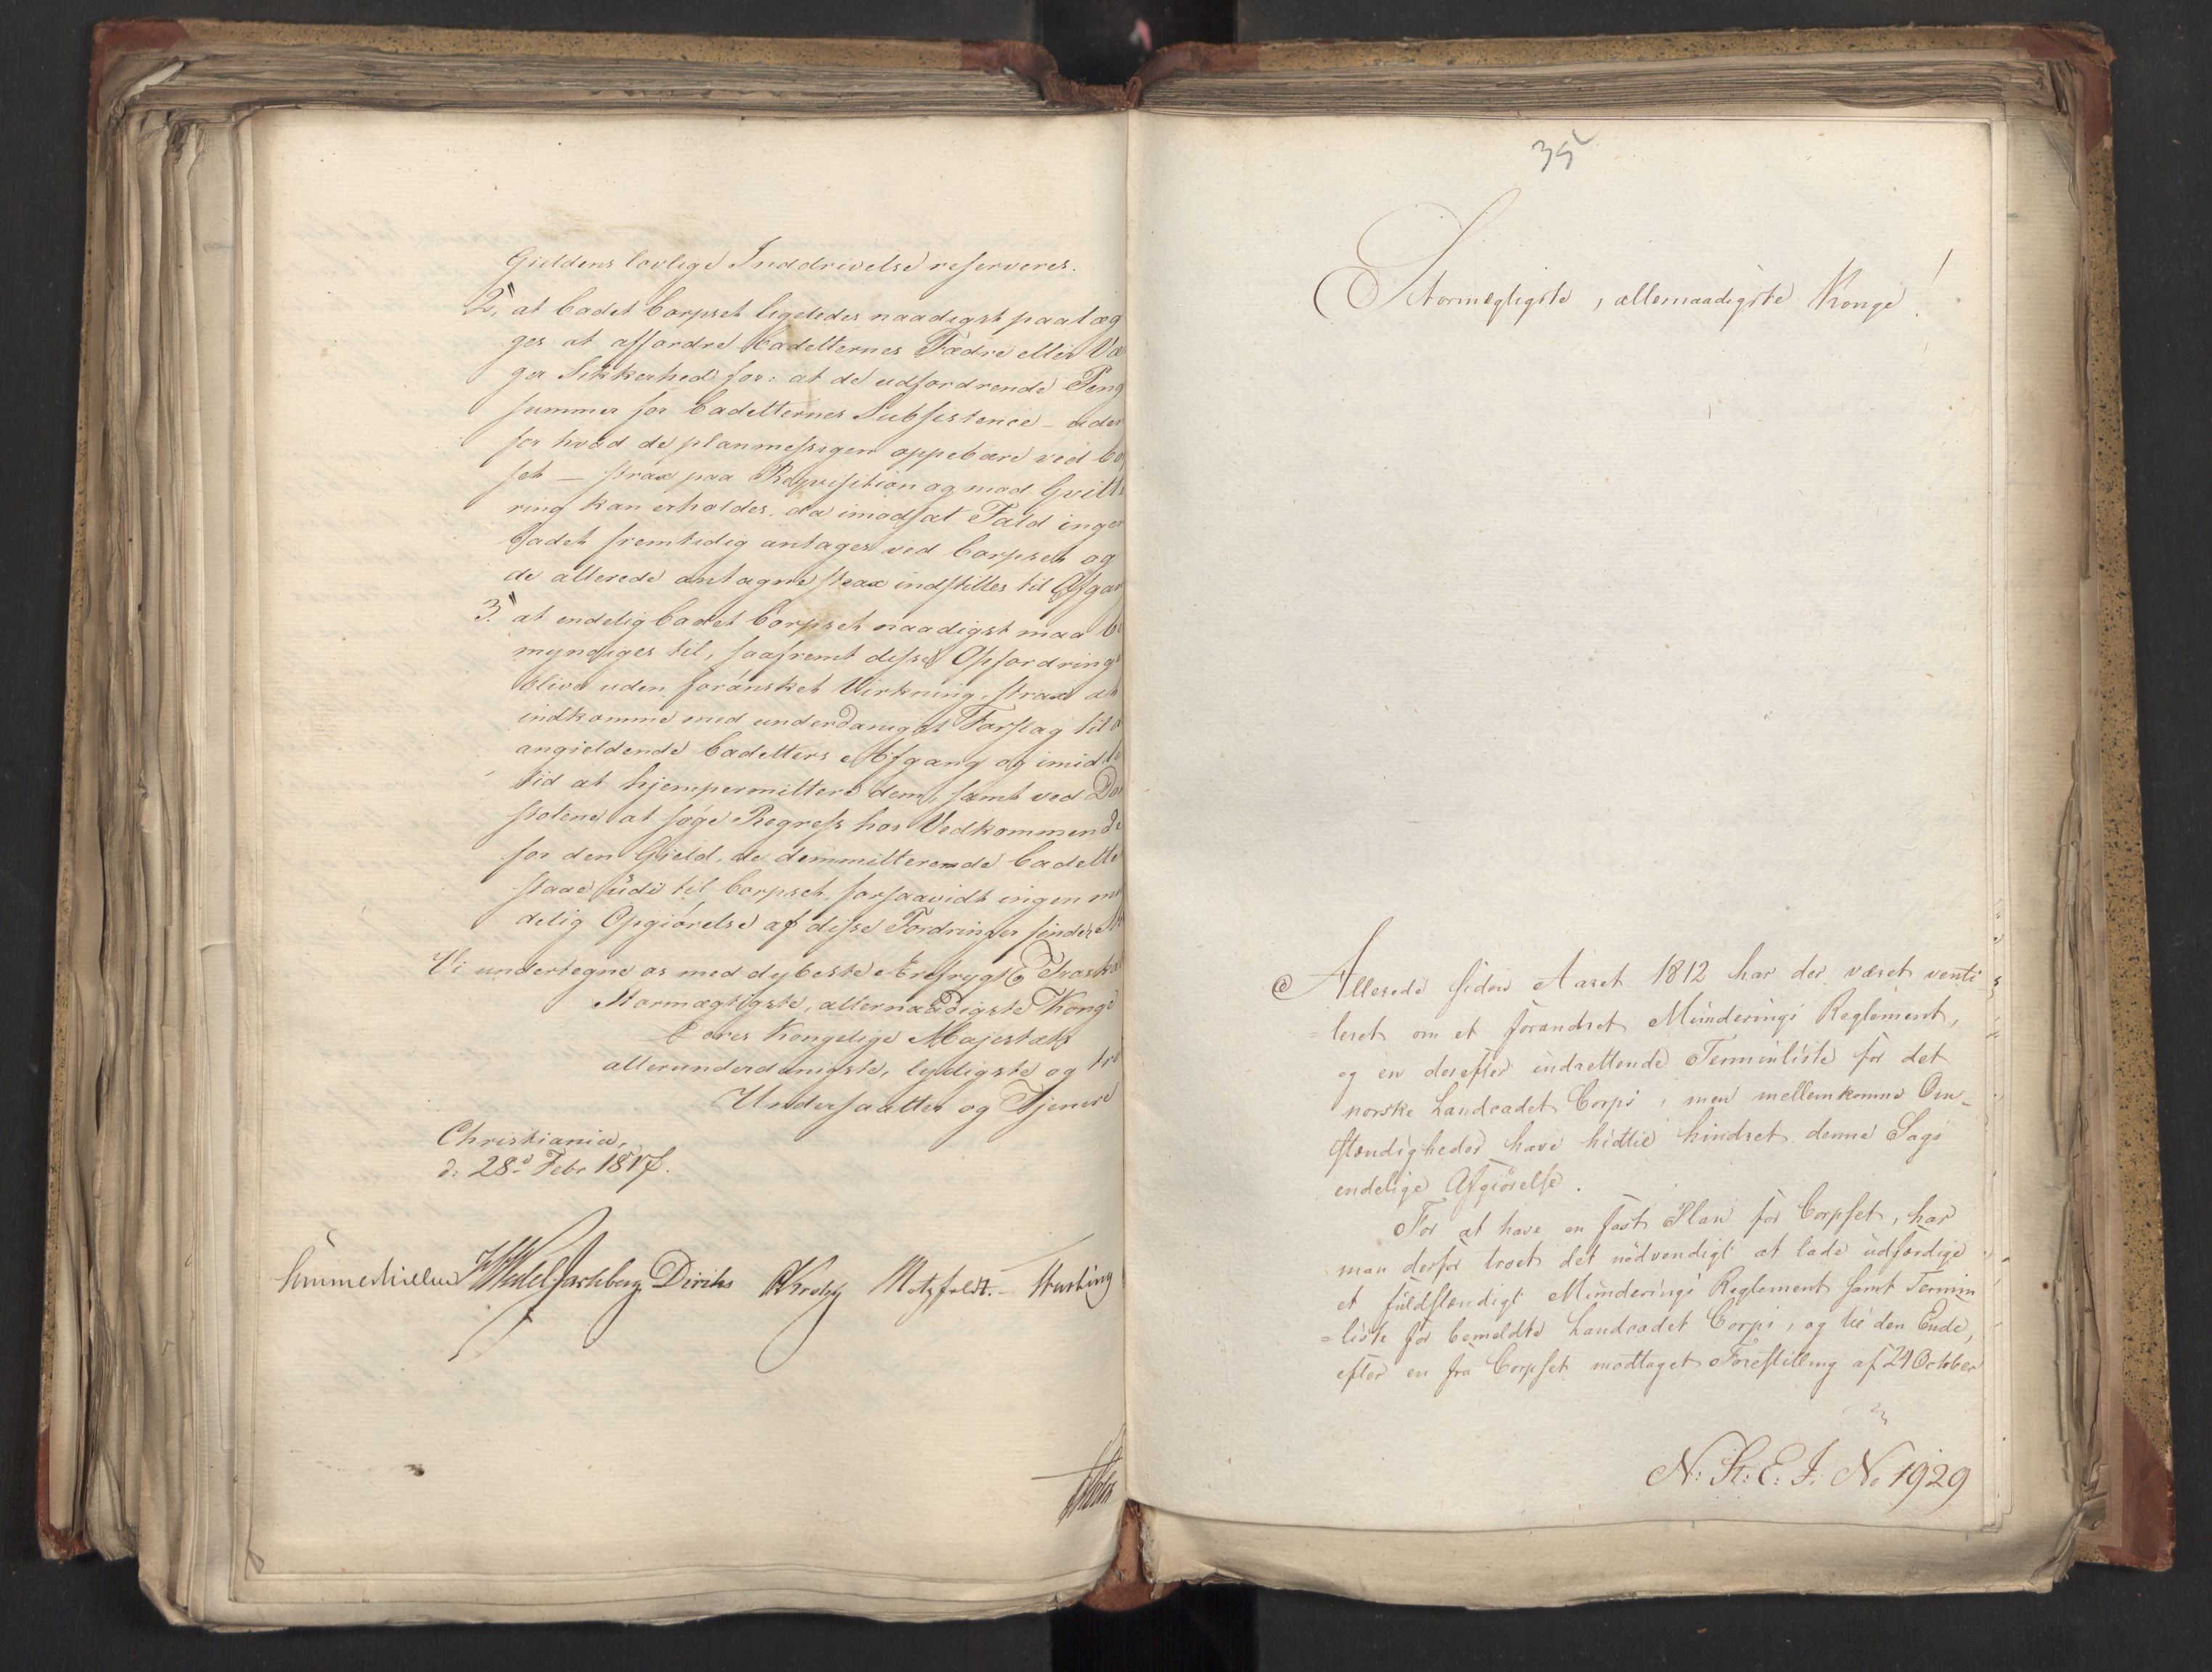 Gieldens lovlige Inddrivelse reserveres.
2, at Cadet Corpset ligeledes naadigst paalæg
ges at affordre Cadetternes Fædre eller Væ
ger Sikkerhed for: at de udfordrende Peng
summer for Cadetternes Subsistence – uden
for hvad de planmessigen oppebære ved Co
set – strax paa Reqvisition og mod Qvitt
ring kan erholdes, da imodsat Fald ingen
Cadet fremtidig antages ved Corpset og
de allerede antagne strax indstilles til Afgan
3. at endelig Cadet Corpset naadigst maa be
myndiges til, saafremt disse Opfordring
blive uden forønsket Virkning, strax at
indkomme med underdanigst Forslag til
angieldende Cadetters Afgang og imidle
tid at hjempermittere dem, samt ved Do
stolene at søge Regress hos Vedkommende
for den Gield, de demmitterende Cadette
staae udi til Corpset, forsaavidt ingen
delig Opgiørelse af disse Fordringer finder
Vi undertegne os med dybeste Ærefrygt Troska
Stormægtigste, allernaadigste Konge
Deres Kongelige Majestæts
allerunderdanigste, lydigste og tro
Undersaatter og Tjenere
Christiania,
d: 28d Febr 1817.
Sommerhielm HWedel Jarlsberg Diriks Krohg Motzfeldt. Hersting
Holst
35
Stormægtigste, allernaadigste Konge!
Allerede siden Aaret 1812 har der været venti
=leret om et forandret Munderings Reglement,
og en derefter indrettende Terminliste for det
norske Landcadet Corps, men mellemkomne Om-
stændigheder have hidtil hindret denne Sags
endelige Afgiørelse.
For at have en fast Plan for Corpset, har
man derfor troet det nødvendigt at lade udfærdige
et fuldstændigt Munderings Reglement samt Termin
=liste for bemeldte Landcadet Corps, og til den Ende,
efter en fra Corpset modtaget Forestilling af 24 October
N: St: E. J. No 1929